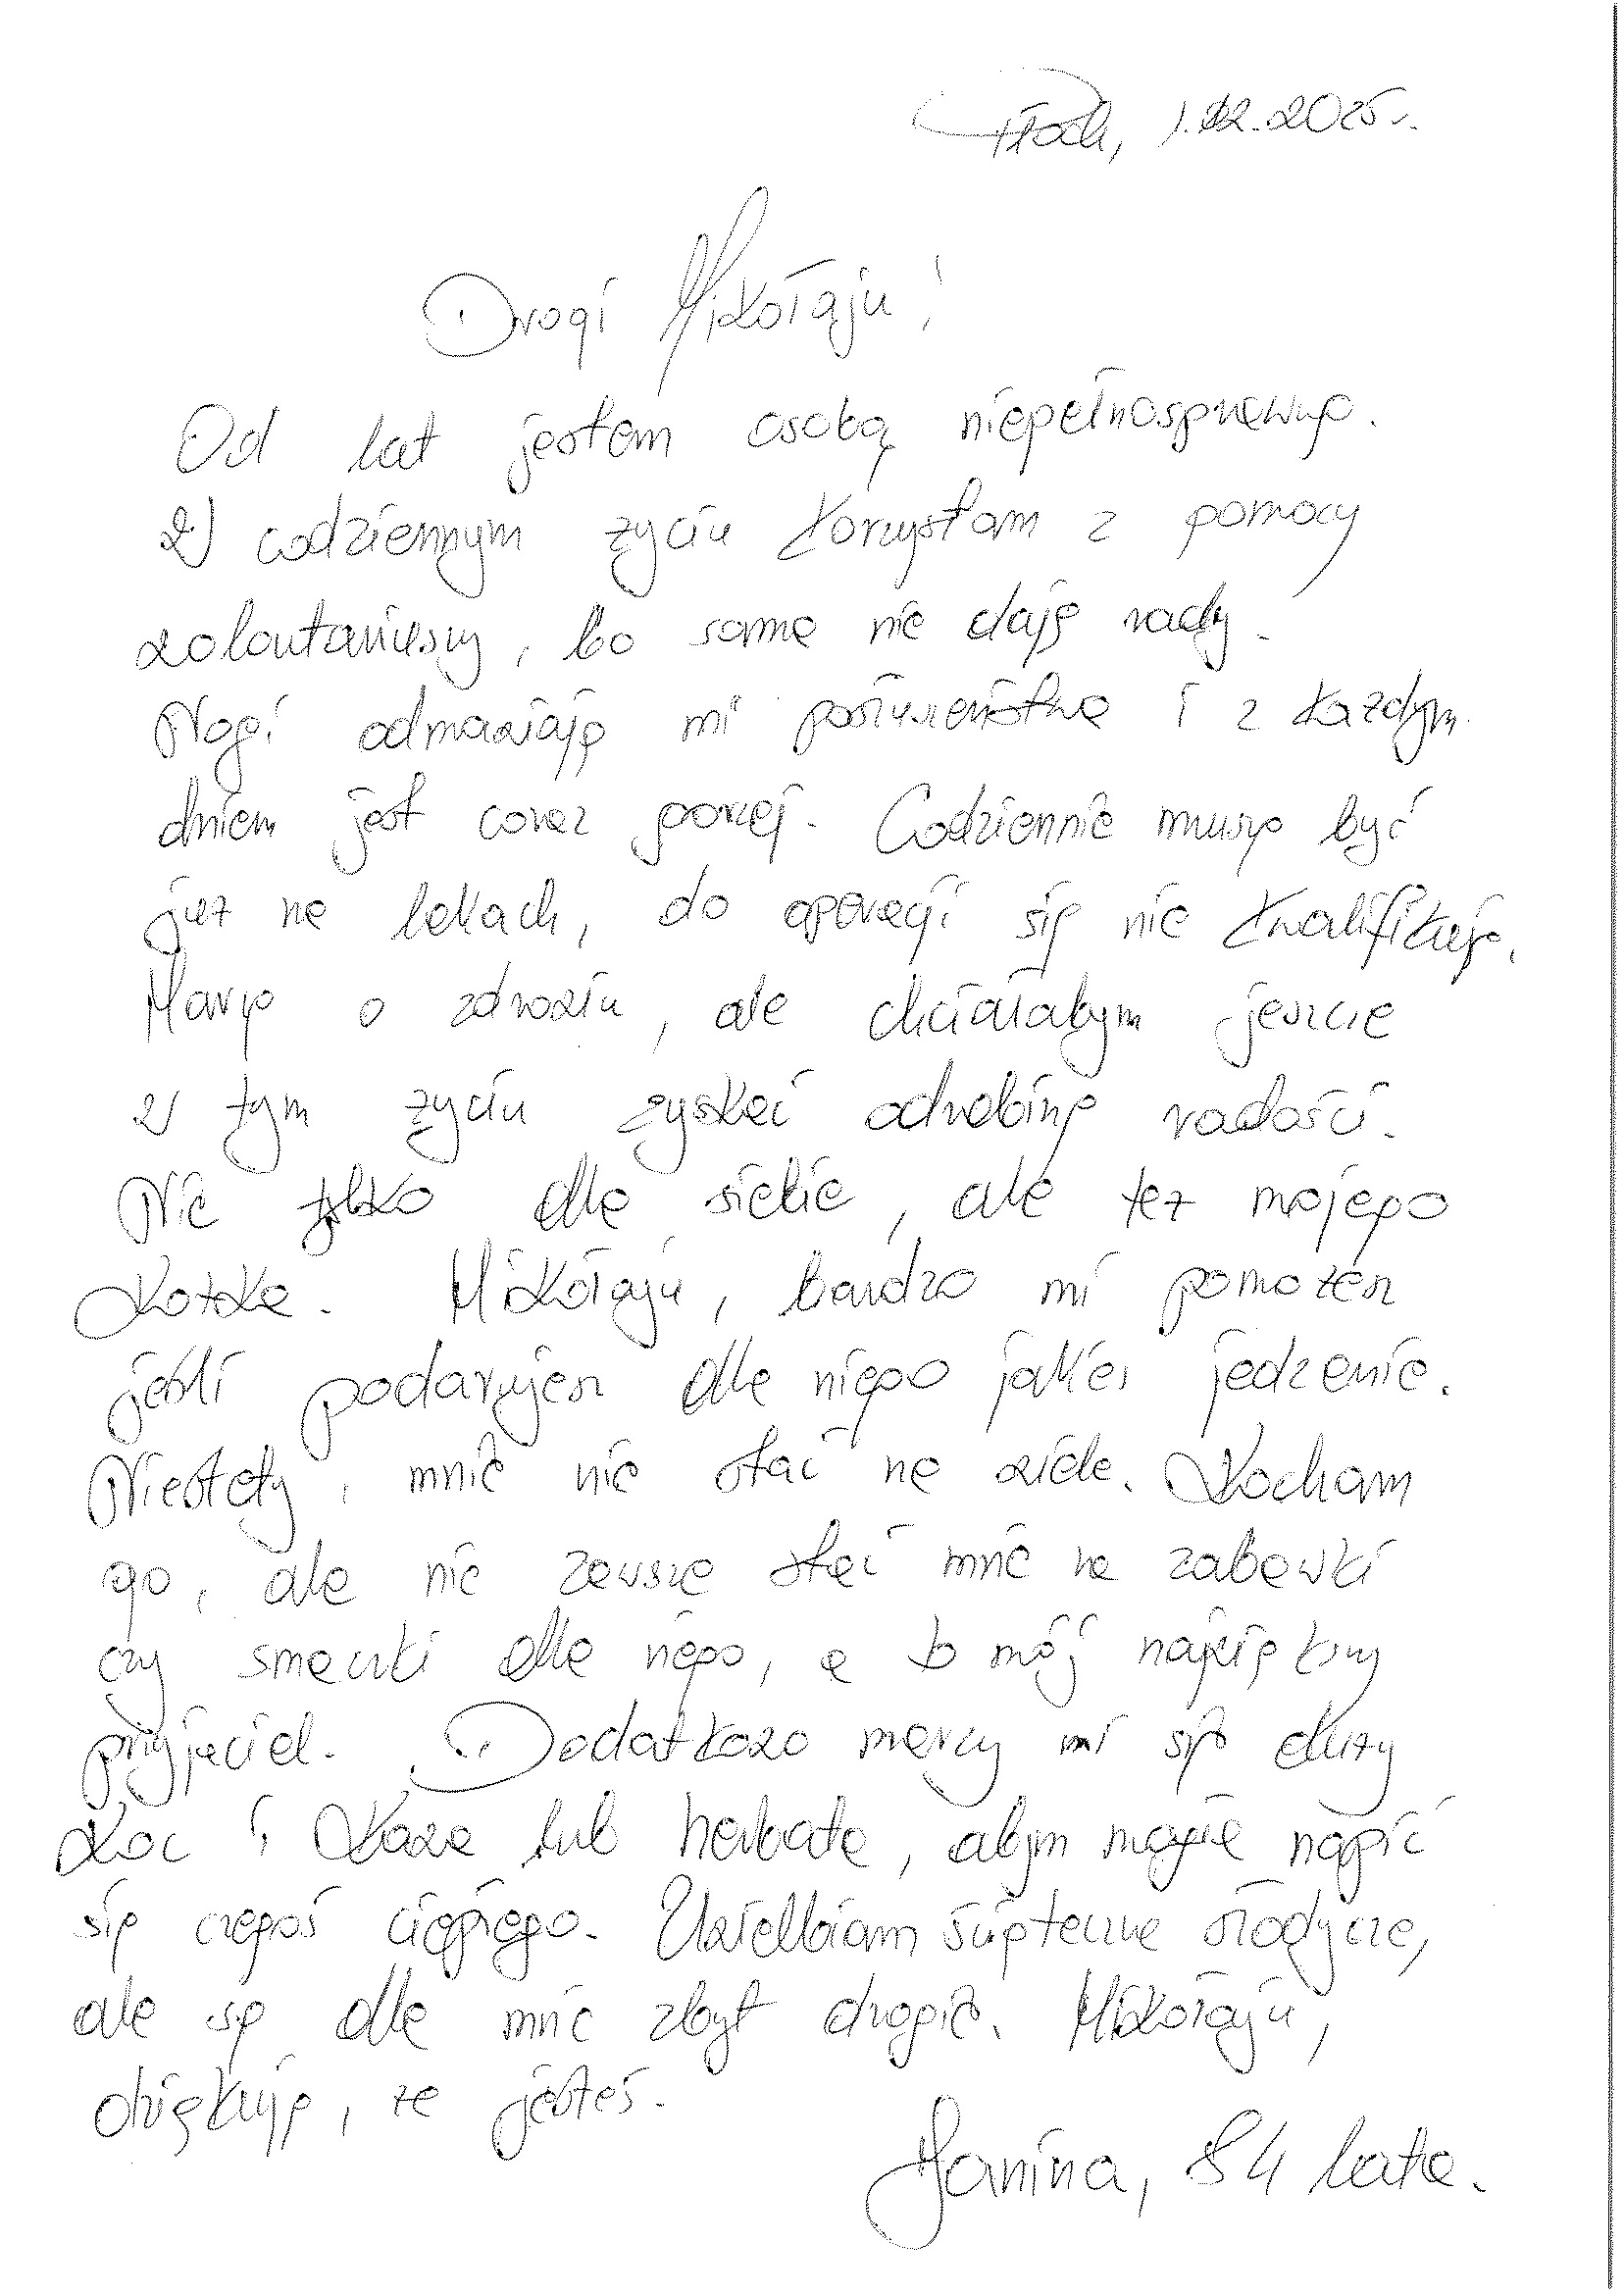 Płock, 1.12.2025r.
Drogi Mikołaju!
Od lat jestem osobą niepełnosprawną.
W codziennym życiu korzystam z pomocy
wolontariuszy, bo sama nie daję rady.
Nogi odmawiają mi posłuszeństwa i z każdym
dniem jest coraz gorzej. Codziennie muszę być
już na lekach, do operacji się nie kwalifikuję.
Marzę o zdrowiu, ale chciałabym jeszcze
w tym życiu zyskać odrobinę radości.
Nie tylko dla siebie, ale też mojego
kotka. Mikołaju, bardzo mi pomożesz
jeśli podarujesz dla niego jakieś jedzenie.
Niestety, mnie nie stać na wiele. Kocham
go, ale nie zawsze stać mnie na zabawki
czy smaczki dla niego, a to mój największy
przyjaciel. Dodatkowo marzy mi się duży
koc i kawa lub herbata, abym mogła napić
się czegoś ciepłego. Uwielbiam świąteczne słodycze,
ale są dla mnie zbyt drogie. Mikołaju,
dziękuję, że jesteś.
Janina, 84 lata.